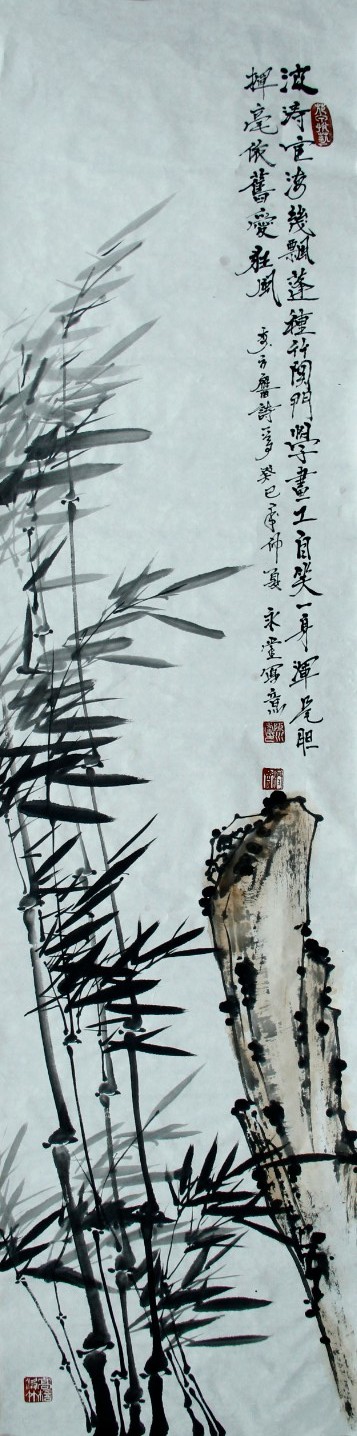 波涛宦海幾飄蓬種竹関門學畫工自笑一身渾是胆
揮毫依舊愛狂風 李方膺詩 癸巳年仲夏 永堂寫意